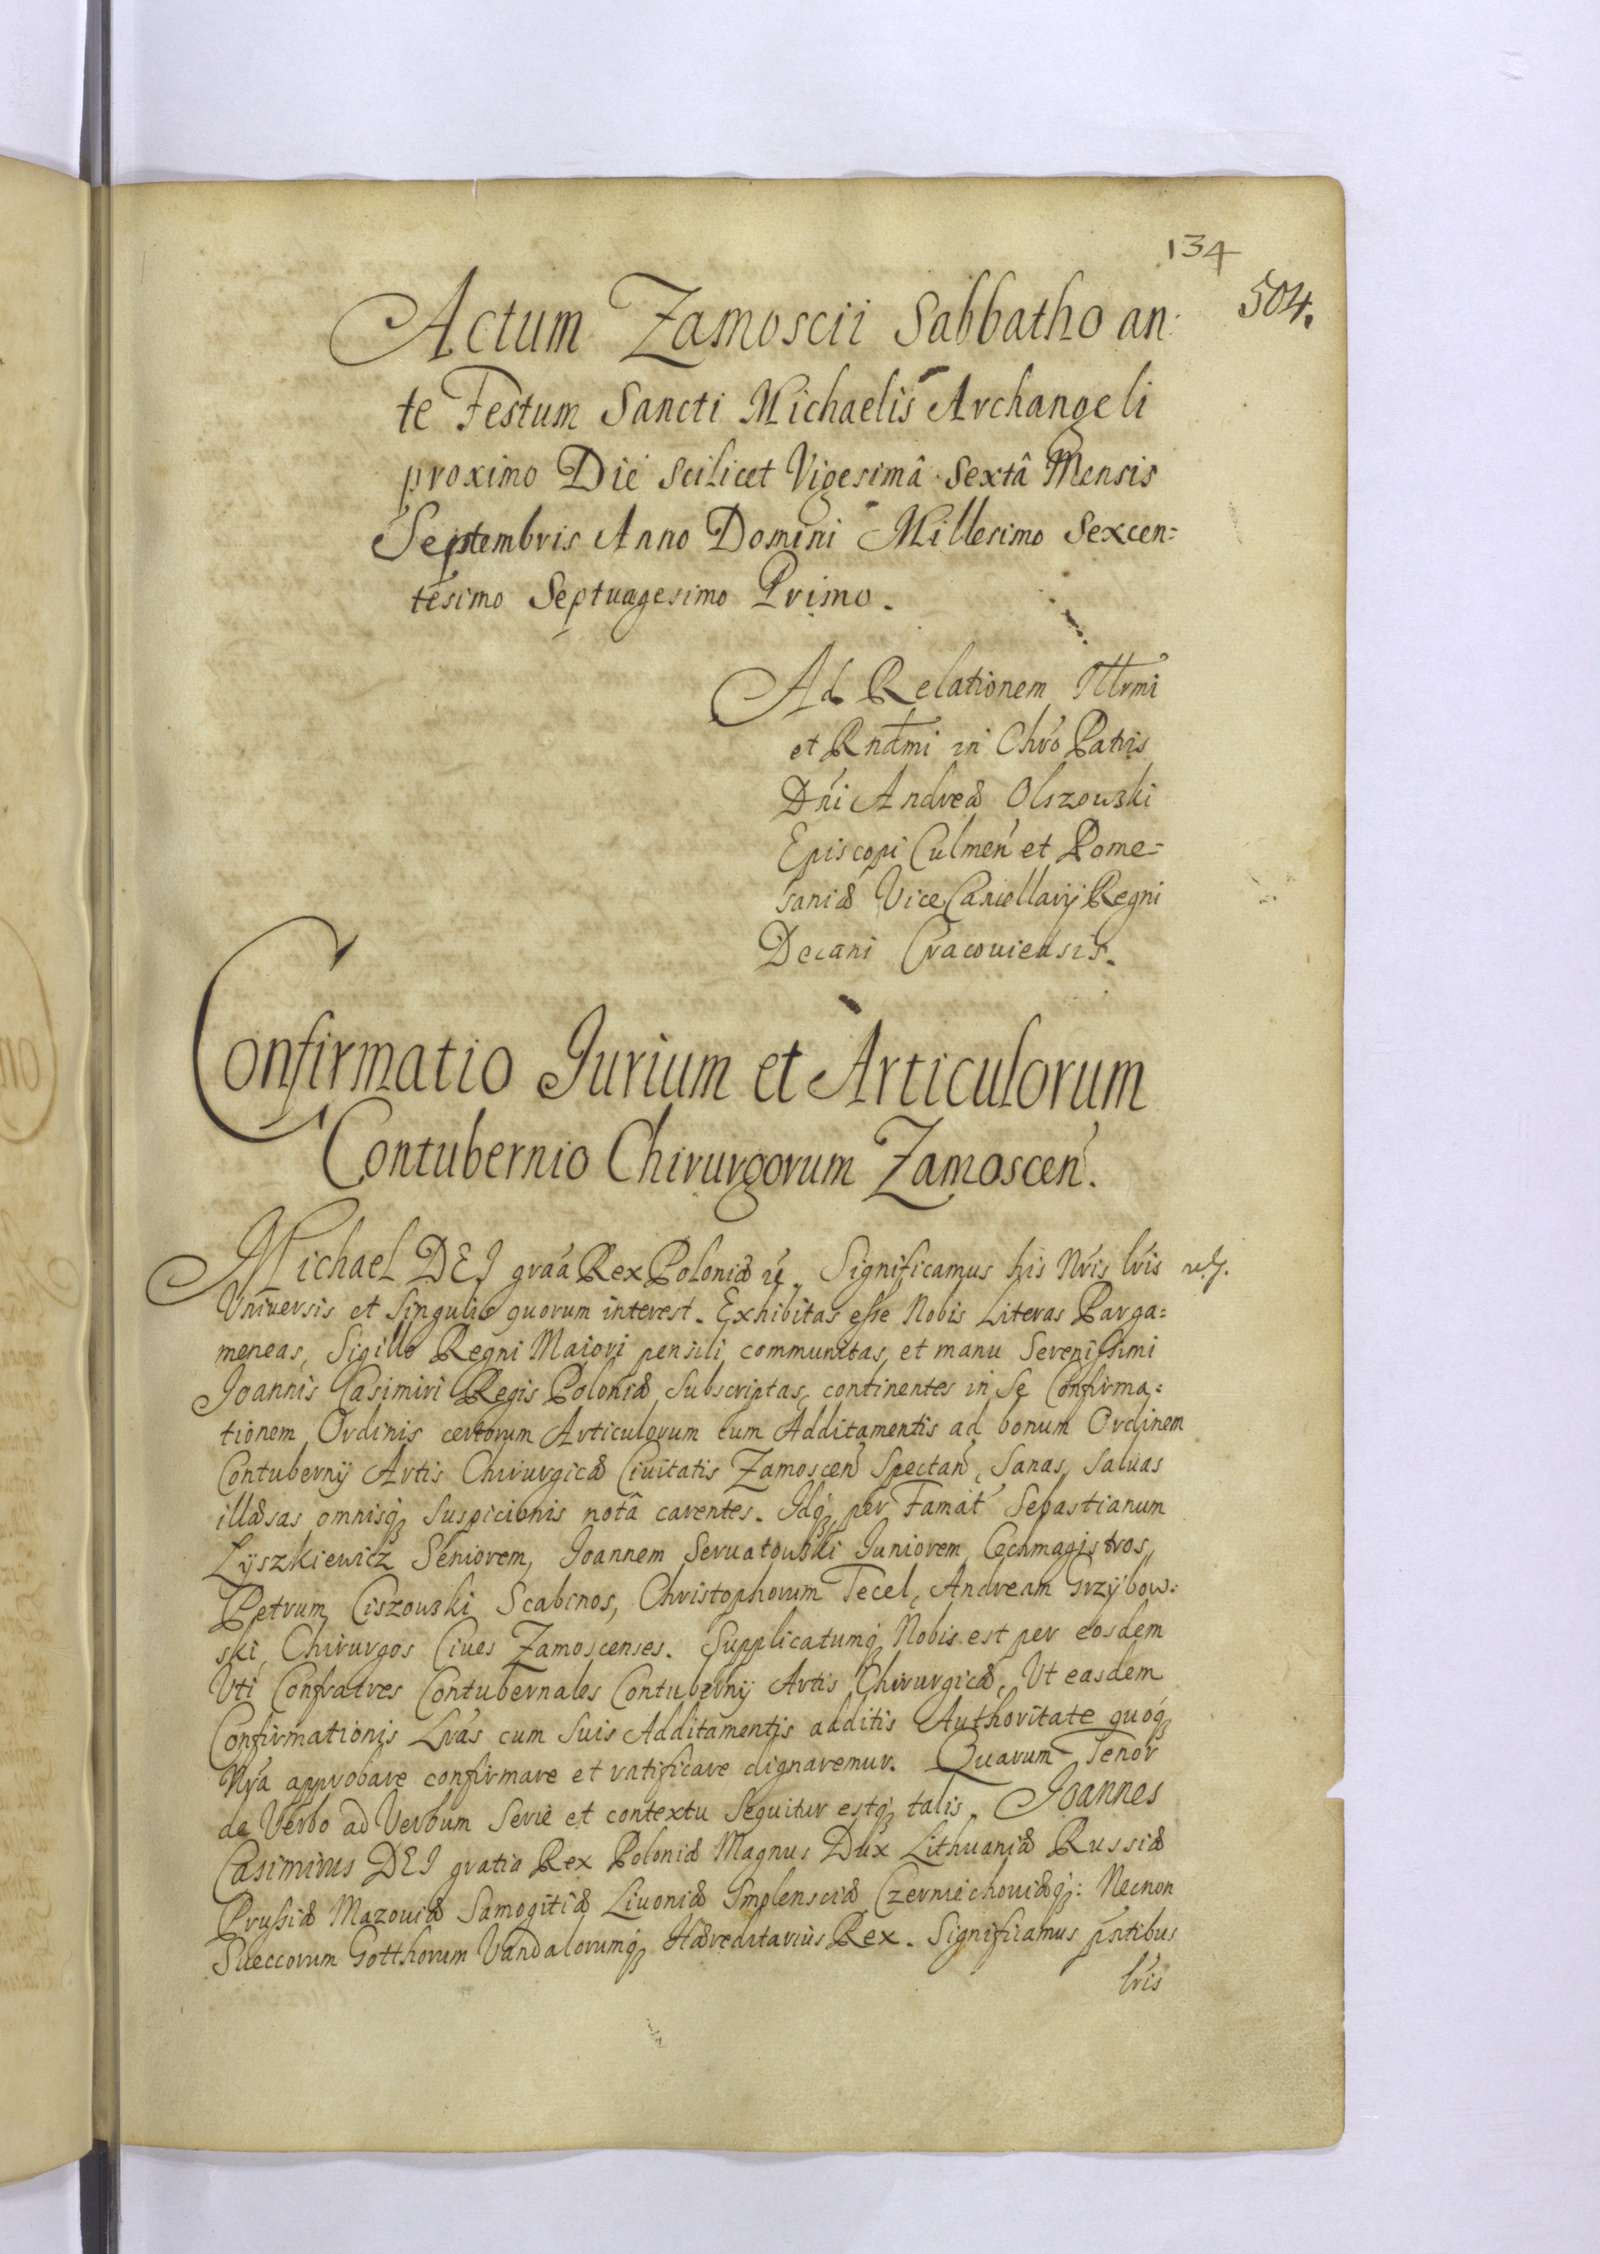 134
504.
Actum Zamoscii Sabbatho an:
te Festum Sancti Michaelis Archangeli
proximo Die scilicet Vigesimâ Sextâ Mensis
Septembris Anno Domini Millesimo Sexcen:
tesimo Septuagesimo Primo.
Ad Relationem Illrmi
et Rndmi in Chro Patris
Dni Andreæ Olszowski
Episcopi Culmen et Pome:
saniæ Vice Cancellarij Regni
Decani Cracouiensis.
Confirmatio Jurium et Articulorum
Contubernio Chirurgorum Zamoscen.
Michael DEI graa Rex Poloniæ Significamus his Nris lris
Vniversis et singulis quorum interest. Exhibitas esse Nobis Literas Parga:
meneas, Sigillo Regni Maiori pensili communitas, et manu Serenissimi
Joannis Casimiri Regis Poloniæ subscriptas, continentes in se Confirma:
tionem Ordinis certorum Articulorum cum Additamentis ad bonum Ordinem
Contubernij Artis Chirurgicæ Ciuitatis Zamoscen Spectan, Sanas, saluas
illæsas omnisq suspicionis notâ carentes. Idq per Famat Sebastianum
Lyszkiewicz Seniorem, Joannem Seruatowski Juniorem Cechmagistros,
Petrum Ciszowski Scabinos, Christophorum Tecel, Andream Grzybow:
ski, Chirurgos Ciues Zamoscenses. Supplicatumq Nobis est per eosdem
Vti Confratres Contubernales Contubernij Artis Chirurgicæ, Vt easdem
Confirmationis Lras cum suis Additamentis additis Authoritate quoq
Nra approbare confirmare et ratificare dignaremur. Quarum Tenor
de Verbo ad Verbum serie et contextu sequitur estq talis. Joannes
Casimirus DEI gratia Rex Poloniæ Magnus Dux Lithuaniæ Russiæ
Prussiæ Mazouiæ Samogitiæ Liuoniæ Smolensciæ Czerniechouiæq: Necnon
Sueccorum Gotthorum Vandalorumq Hæreditarius Rex. Significamus pntibus
lris